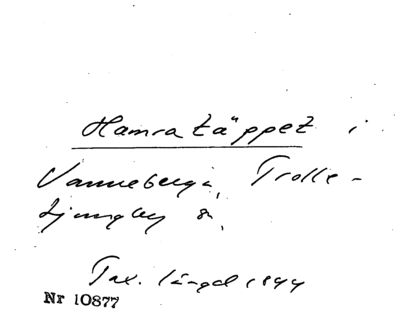 Hamra täppet i
Vanneberga, Trolle-
ljungby s,
Tax. längd 1844
Nr 10877